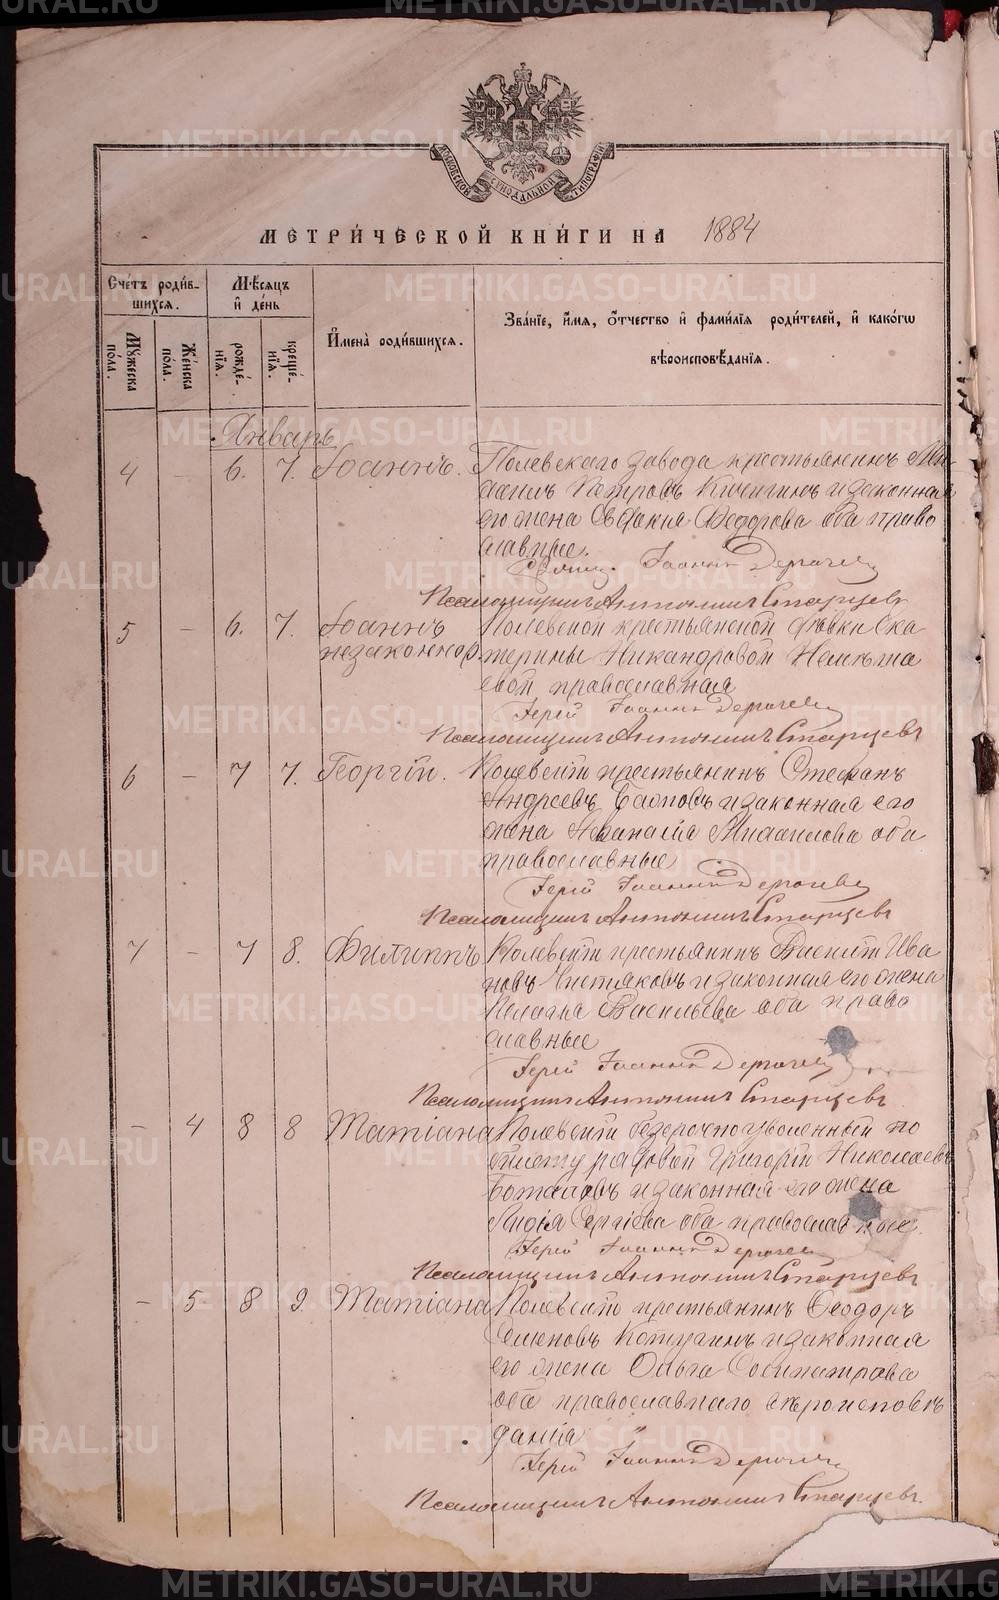 МОСКОВСКОЙ СѴНОДАЛЬНОЙ ТИПОГРАФІИ
МЕТРИ́ЧЕСКОЙ КНИ́ГИ НА 1884
Сче́тъ роди́в-
шихся.
Мꙋ́жеска
по́ла.
Же́нска
по́ла.
Мѣ́сяцъ
и҆ де́нь
рожде́-
нїя.
креще́-
нїя.
И҆мена̀ роди́вшихся.
Зва́нїе, и҆́мя, ѻ҆́тчество и҆ фами́лїя роди́телей, и҆ како́гѡ
вѣроисповѣ́данїя.
Январь
4 – 6. 7. Іоаннъ. Полевскаго завода крестьянинъ Ми-
хаилъ Петровъ Кичигинъ и законная
его жена Евдокия Ѳедорова оба право
славные.
Іоаннъ Дерягинъ
Псаломщикъ Антонинъ Старцевъ
5 – 6. 7. Іоаннъ Полевской крестьянской дѣвки Ека
незаконнор. терины Никандровой
православная
Іерей Іоаннъ Дерягинъ
Псаломщикъ Антонинъ Старцевъ
6 – 7 7. Георгій. Полевскій крестьянинъ Стефанъ
Андреевъ и законная его
жена Афанасія Михаилова оба
православные
Іерей Іоаннъ Дерягинъ
Псаломщикъ Антонинъ Старцевъ
7 – 7 8. Филиппъ Полевскій крестьянинъ Василій Ива
новъ Чистяковъ и законная его жена
Пелагия Васильева оба право
славные
Іерей Іоаннъ Дерягинъ
Псаломщикъ Антонинъ Старцевъ
– 4 8 8 Татіана Полевскій безсрочно уволенный по
билету рядовой Григорій Николаевъ
и законная его жена
Лидія Сергіева оба православные.
Іерей Іоаннъ Дерягинъ
Псаломщикъ Антонинъ Старцевъ
– 5 8 9. Татіана Полевскій крестьянинъ Ѳеодоръ
Семеновъ Котугинъ и законная
его жена Ольга Сосипатрова
оба православнаго вѣроисповѣ
данія
Іерей Іоаннъ Дерягинъ
Псаломщикъ Антонинъ Старцевъ.
METRIKI.GASO-URAL.RU